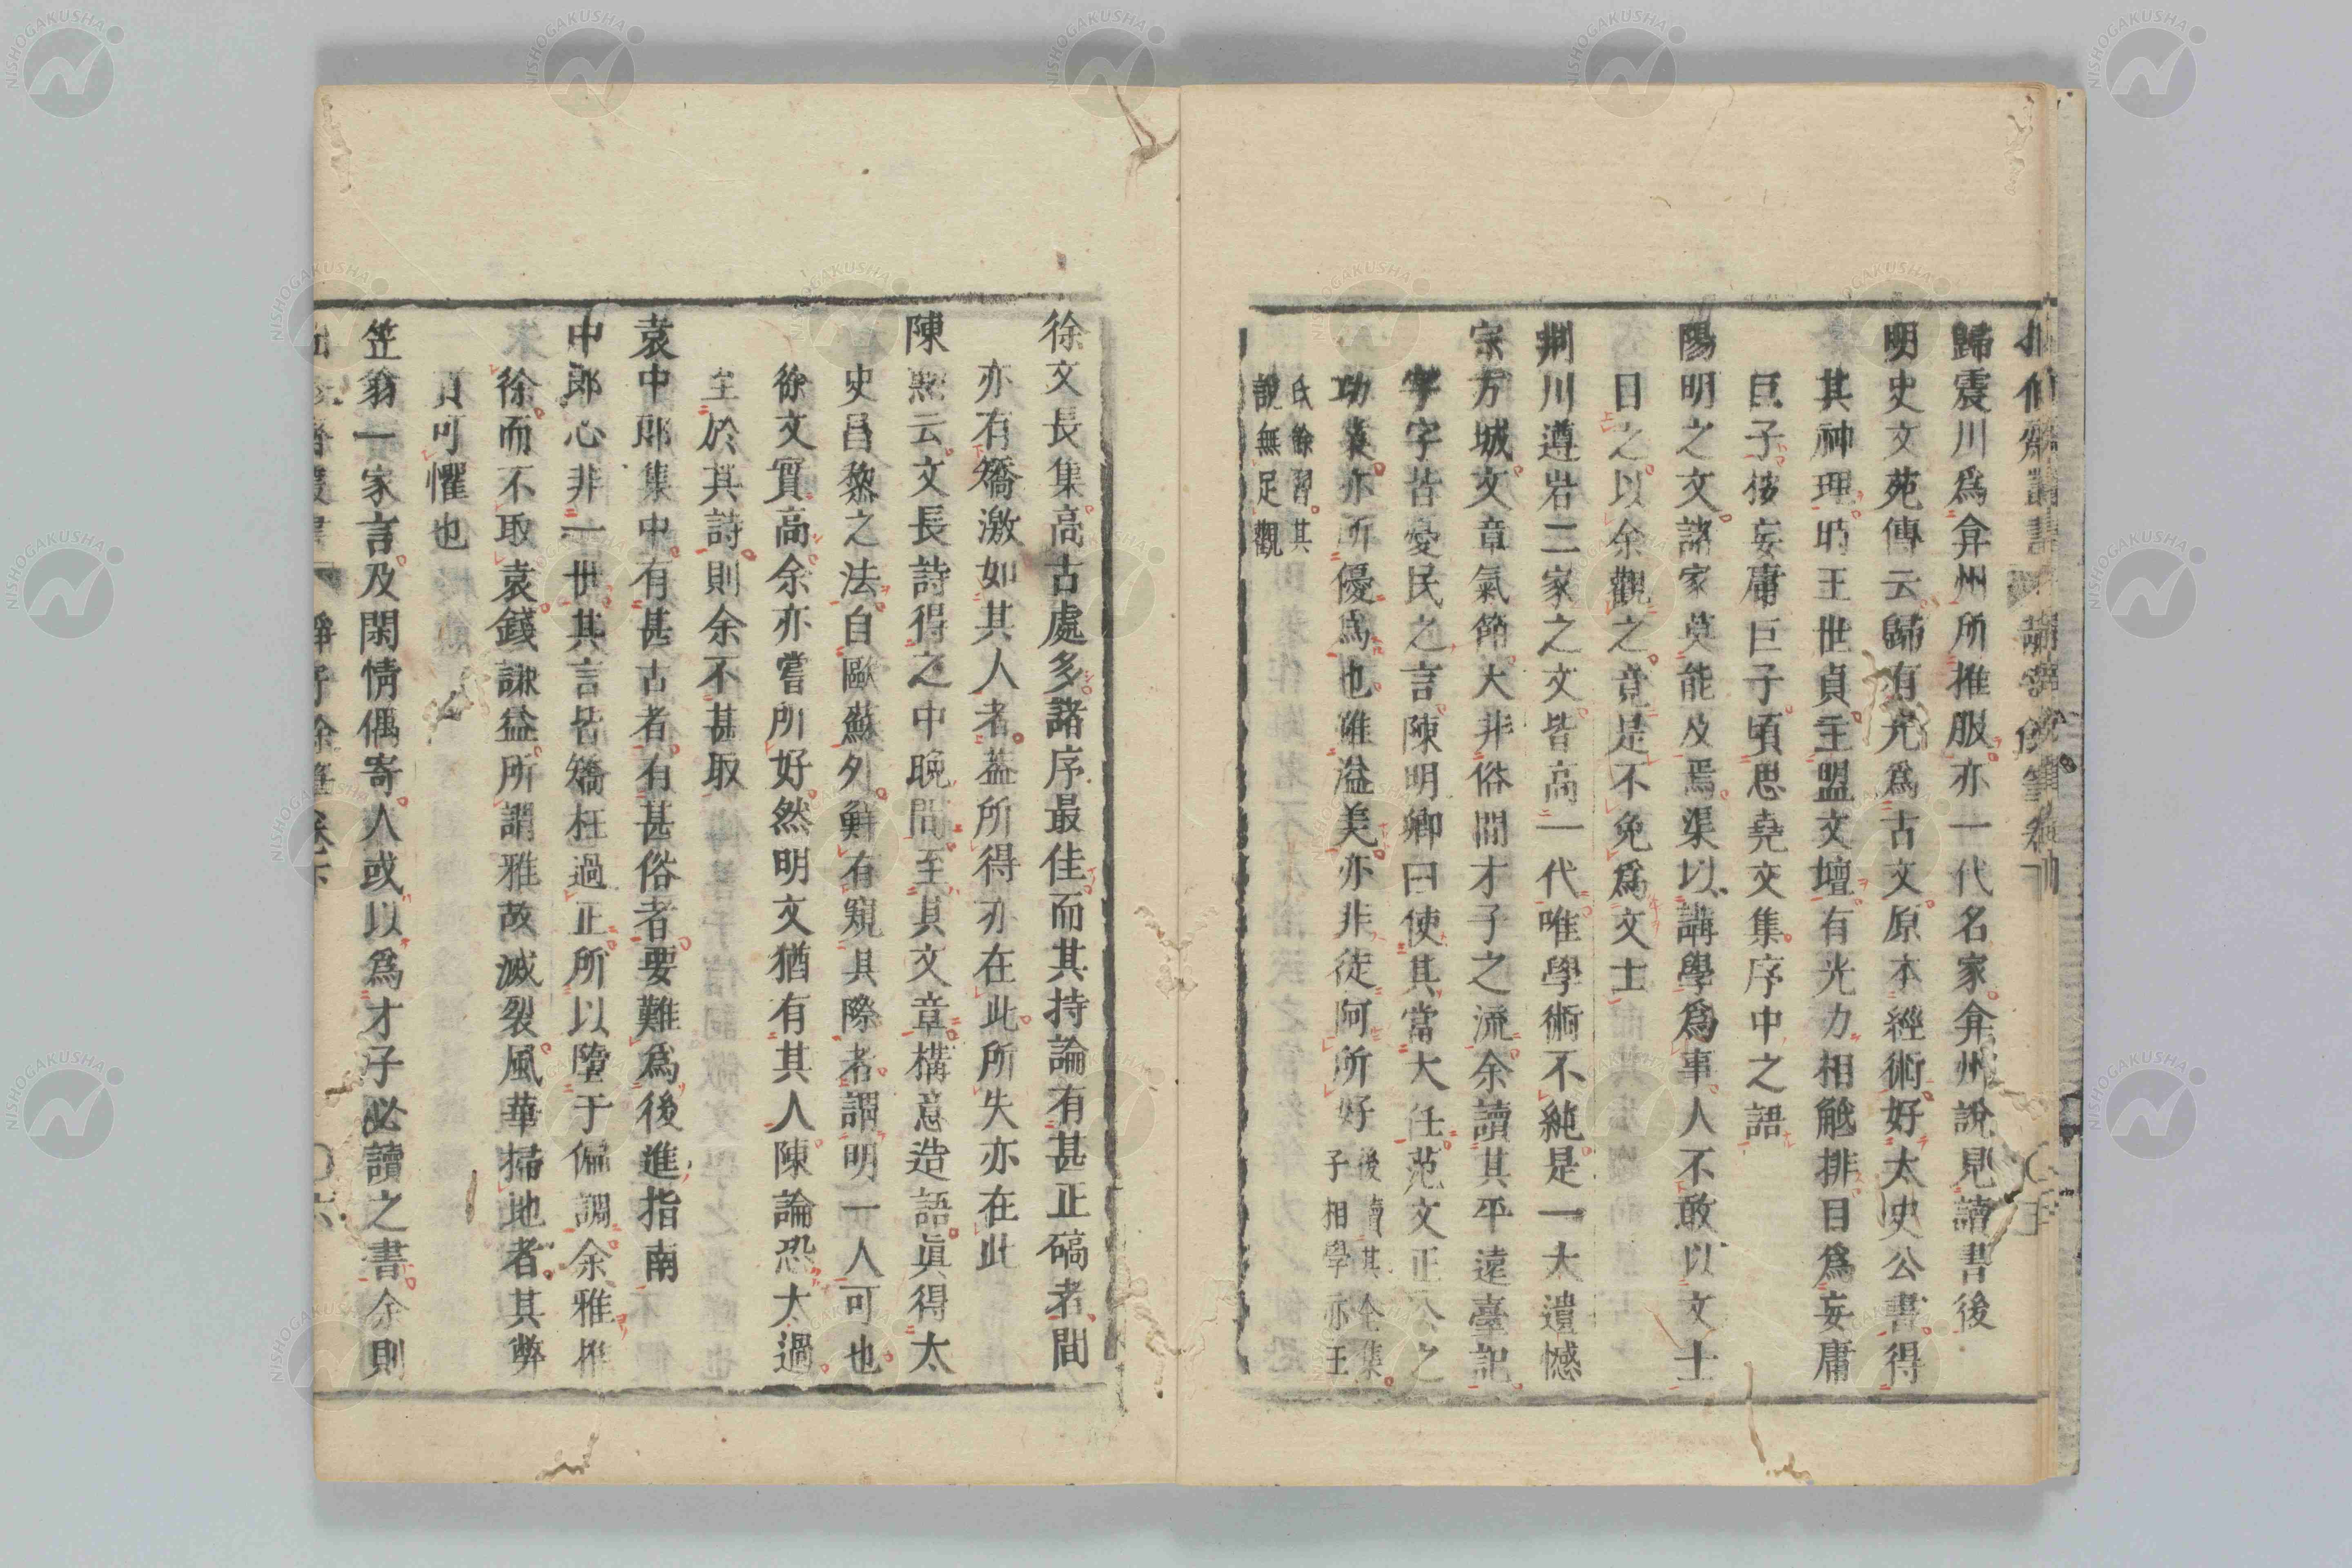 歸震川爲弇州所推服亦一代名家弇州說見讀書後
明史文苑傳云歸有光爲古文原本經術好太史公書得
其神理時王世貞主盟文壇有光力相觝排目爲妄庸
巨子彼妄庸巨子頃思堯文集序中之語
陽明之文諸家莫能及焉渠以講學爲事人不敢以文士
目之以余觀之竟是不免爲文士
荆川遵岩二家之文皆高一代唯學術不純是一大遺憾
宗方城文章氣節大非俗間才子之流余讀其平遠臺記
字字皆憂民之言陳明卿曰使其當大任范文正公之
功業亦所優爲也雖溢美亦非徒阿所好
後讀其全集
子相學亦王
氏餘習其
說無足觀
徐文長集高古處多諸序最佳而其持論有甚正碻者間
亦有矯激如其人者葢所得亦在此所失亦在此
陳𤋮云文長詩得之中晩間至其文章構意造語眞得太
史昌黎之法自歐蘇外鮮有窺其際者謂明一人可也
徐文實高余亦嘗所好然明文猶有其人陳論恐太過
至於其詩則余不甚取
袁中郎集中有甚古者有甚俗者要難爲後進指南
中郎心非一世其言皆矯枉過正所以墮于偏調余雅推
徐而不取袁錢謙益所謂雅故滅裂風華掃地者其弊
眞可懼也
笠翁一家言及閑情偶寄人或以爲才子必讀之書余則